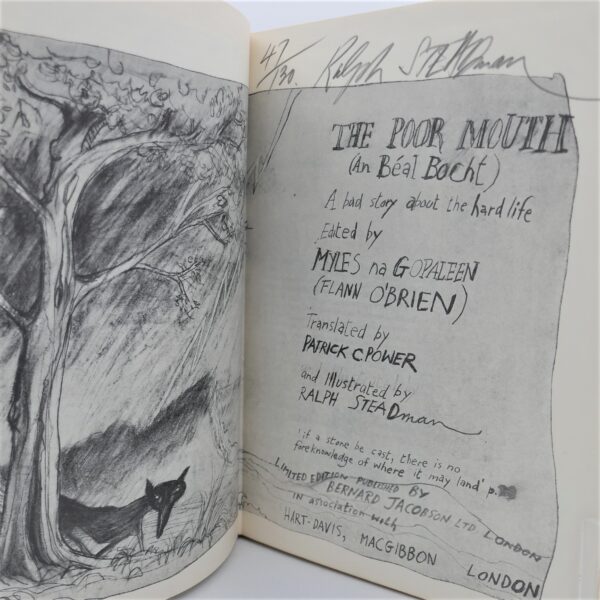 47/130. Ralph STEADman
THE POOR MOUTH
(An Béal Bocht)
A bad story about the hard life
Edited by
MYLES na GOPALEEN
(FLANN O'BRIEN)
Translated by
PATRICK C. POWER
and Illustrated by
RALPH STEADman
'if a stone be cast, there is no
foreknowledge of where it may land' p.
LIMITED EDITION PUBLISHED BY
BERNARD JACOBSON LTD LONDON
in association with
HART-DAVIS, MACGIBBON LONDON